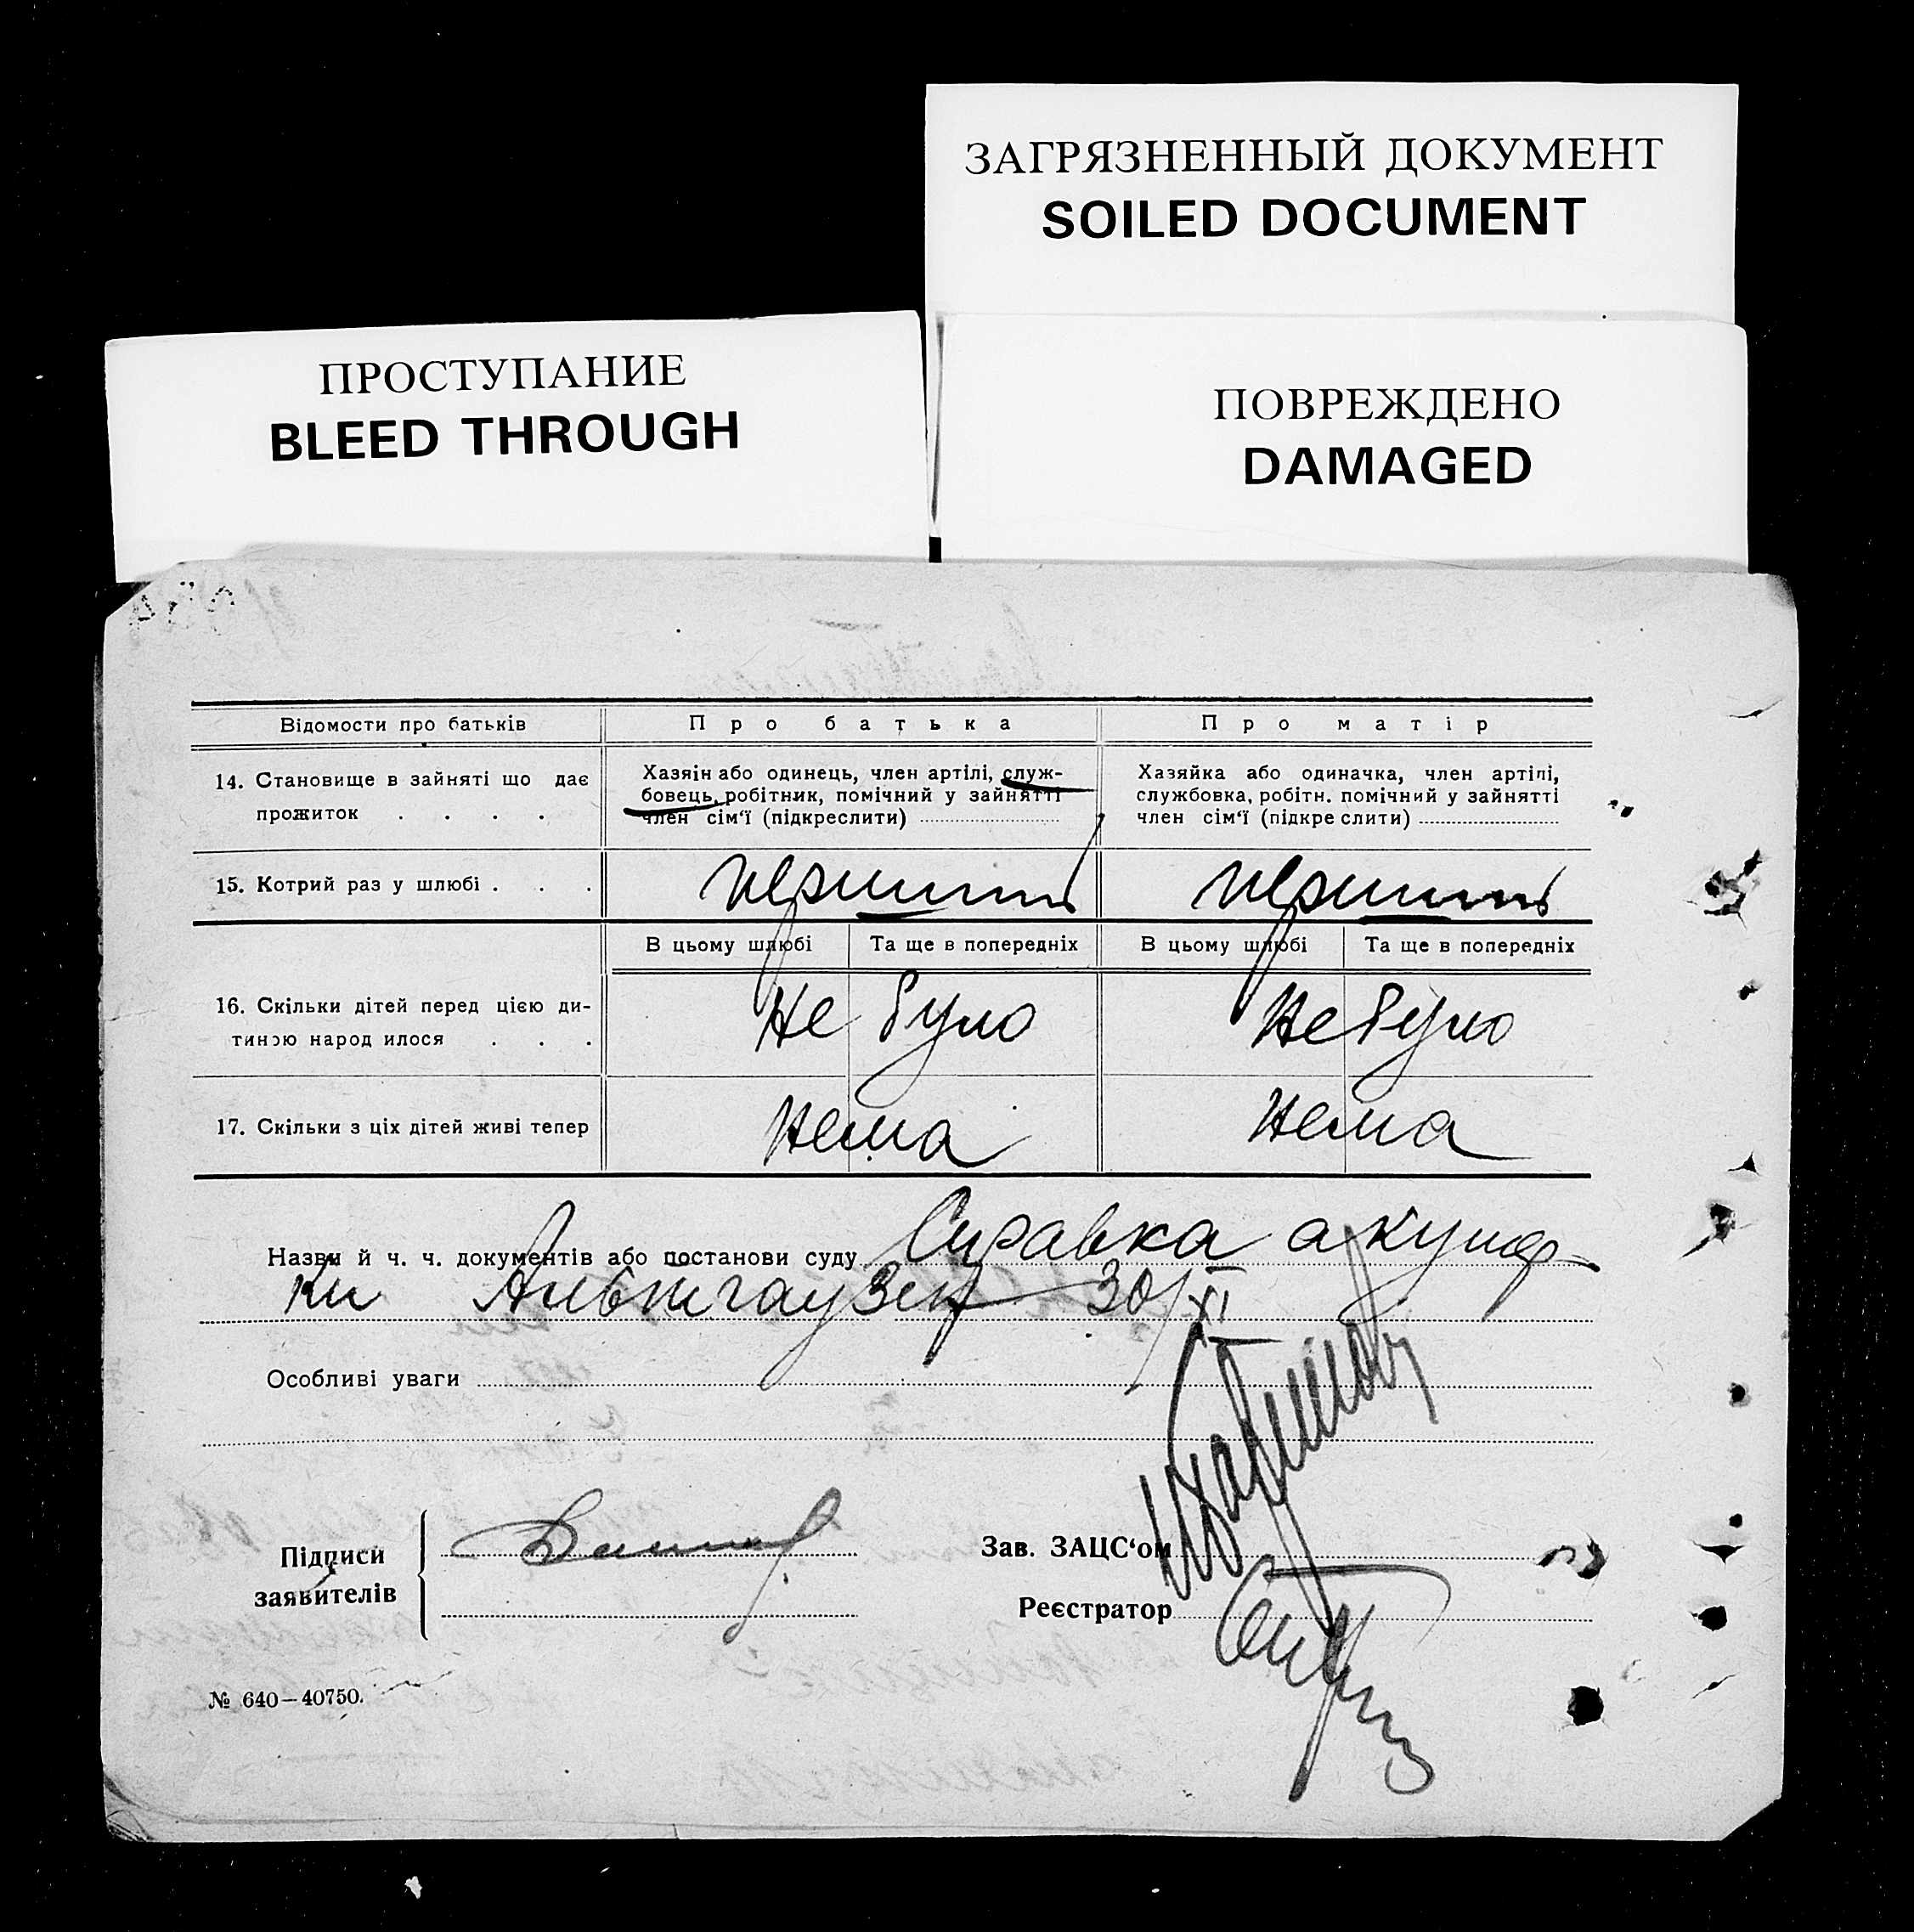 ЗАГРЯЗНЕННЫЙ ДОКУМЕНТ
SOILED DOCUMENT
ПРОСТУПАНИЕ
BLEED THROUGH
ПОВРЕЖДЕНО
DAMAGED
Відомости про батьків
Про батька
Про матір
14. Становище в зайняті що дає
прожиток . . . .
Хазяін або одинець, член артілі, служ-
бовець, робітник, помічний у зайнятті
член сім‘ї (підкреслити)
Хазяйка або одиначка, член артілі,
службовка, робітн. помічний у зайнятті
член сім‘ї (підкреслити)
15. Котрий раз у шлюбі . . .
перший
перший
В цьому шлюбі
Та ще в попередніх
В цьому шлюбі
Та ще в попередніх
16. Скільки дітей перед цією ди-
тиною народилося . . .
Не було
Не було
17. Скільки з ціх дітей живі тепер
Нема
Нема
Назви й ч. ч. документів або постанови суду Справка акушер-
ки 30/XI
Особливі уваги
Підписи
заявителів
Зав. ЗАЦС‘ом
Реєстратор
№ 640—40750.